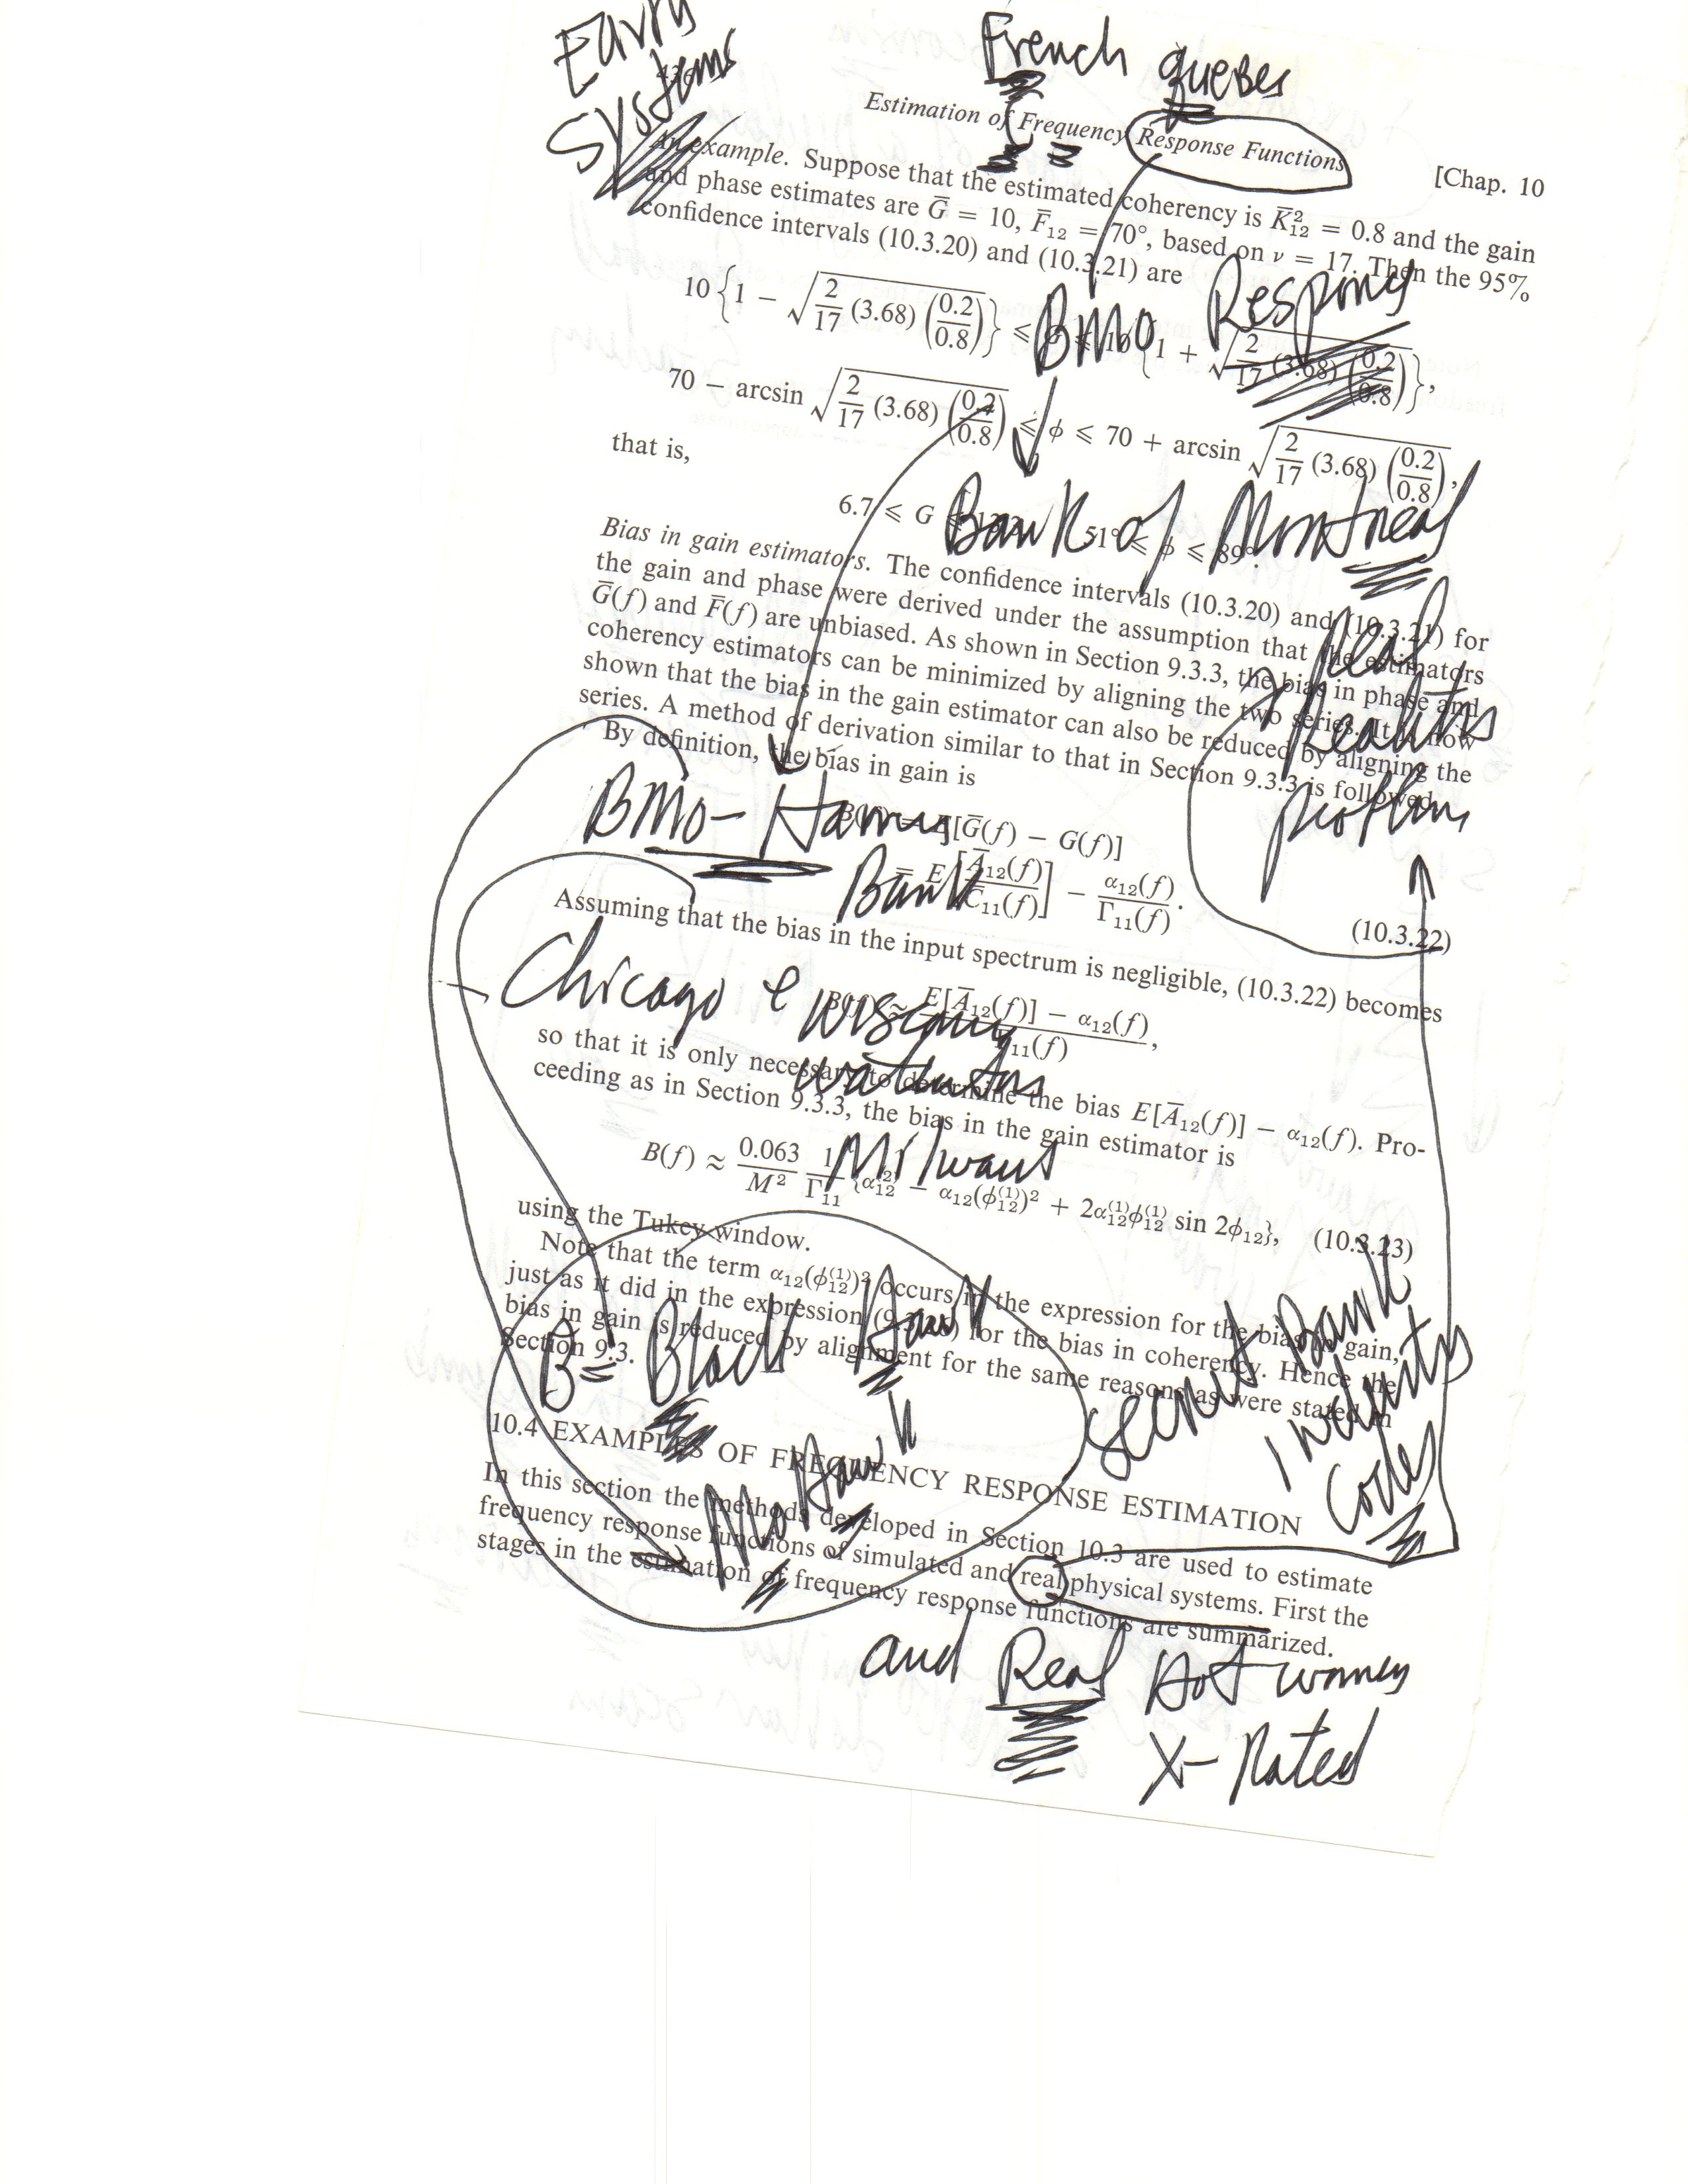 Early
Systems
French Quebes
436
Estimation of Frequency Response Functions
[Chap. 10
An example. Suppose that the estimated coherency is K̅²₁₂ = 0.8 and the gain
and phase estimates are G̅ = 10, F̅₁₂ = 70°, based on ν = 17. Then the 95%
confidence intervals (10.3.20) and (10.3.21) are
10 {1 − √(2/17 (3.68) (0.2/0.8))} ⩽ G ⩽ 10 {1 + √(2/17 (3.68) (0.2/0.8))},
BMO
70 − arcsin √(2/17 (3.68) (0.2/0.8)) ⩽ φ ⩽ 70 + arcsin √(2/17 (3.68) (0.2/0.8)),
that is,
6.7 ⩽ G ⩽ 51° ⩽ φ ⩽ 89°.
Bank of Montreal
Bias in gain estimators. The confidence intervals (10.3.20) and (10.3.21) for
the gain and phase were derived under the assumption that the estimators
G̅(f) and F̅(f) are unbiased. As shown in Section 9.3.3, the bias in phase and
coherency estimators can be minimized by aligning the two series. It is now
shown that the bias in the gain estimator can also be reduced by aligning the
series. A method of derivation similar to that in Section 9.3.3 is followed.
Real
By definition, the bias in gain is
BMO- Harris
Bank
B(f) = E[G̅(f) − G(f)]
= E[A̅₁₂(f)/C̅₁₁(f)] − α₁₂(f)/Γ₁₁(f).
(10.3.22)
Assuming that the bias in the input spectrum is negligible, (10.3.22) becomes
Chicago &
B(f) ≈ (E[A̅₁₂(f)] − α₁₂(f))/Γ₁₁(f),
so that it is only necessary to determine the bias E[A̅₁₂(f)] − α₁₂(f). Pro-
ceeding as in Section 9.3.3, the bias in the gain estimator is
B(f) ≈ 0.063/M² 1/Γ₁₁ {α₁₂⁽²⁾ − α₁₂(φ₁₂⁽¹⁾)² + 2α₁₂⁽¹⁾φ₁₂⁽¹⁾ sin 2φ₁₂}, (10.3.23)
using the Tukey window.
Note that the term α₁₂(φ₁₂⁽¹⁾)² occurs in the expression for the bias in gain,
just as it did in the expression for the bias in coherency. Hence the
bias in gain is reduced by alignment for the same reasons as were stated in
Section 9.3.
B= Black Hawk
MoHawk
Bank
Codes
10.4 EXAMPLES OF FREQUENCY RESPONSE ESTIMATION
In this section the methods developed in Section 10.3 are used to estimate
frequency response functions of simulated and real physical systems. First the
stages in the estimation of frequency response functions are summarized.
and Real Hot women
X-Rated